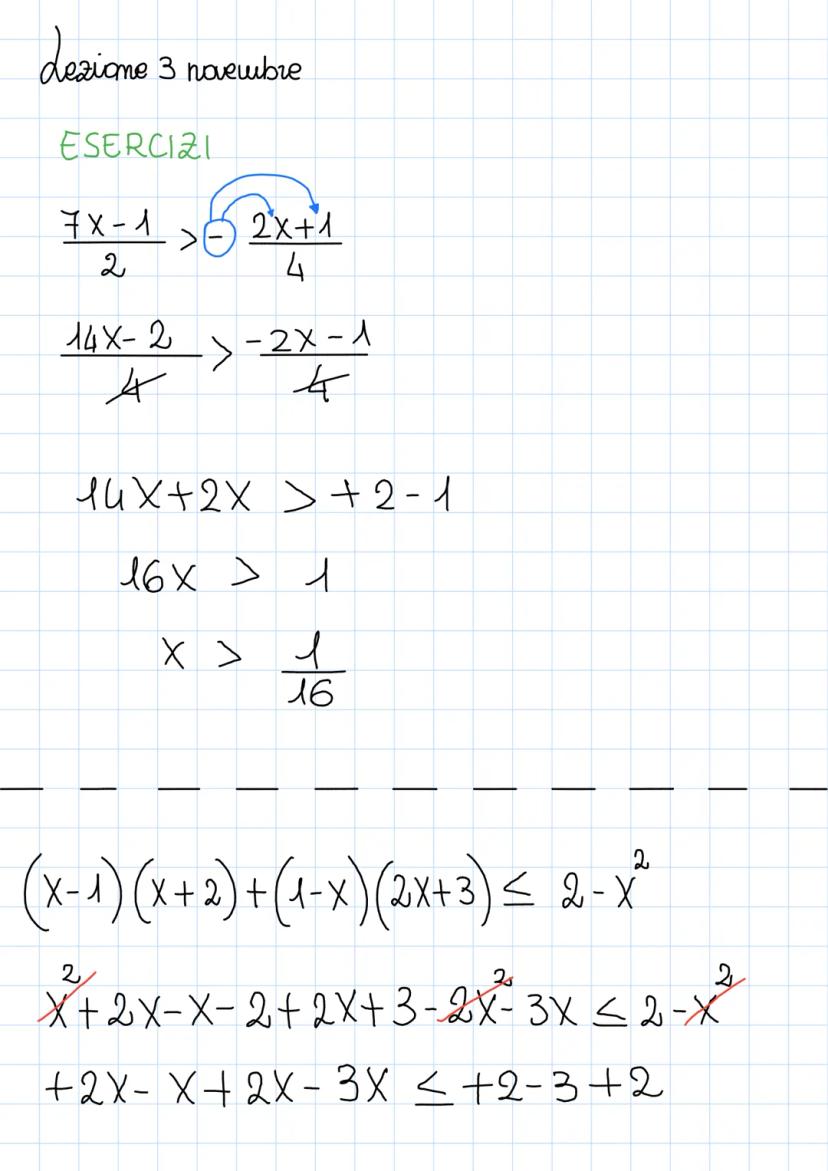 Lezione 3 novembre
ESERCIZI
7x-1/2 > - 2x+1/4
14x-2/4 > -2x-1/4
14x+2x > +2-1
16x > 1
x > 1/16
(x-1)(x+2)+(1-x)(2x+3) ≤ 2-x²
x²+2x-x-2+2x+3-2x²-3x ≤ 2-x²
+2x-x+2x-3x ≤ +2-3+2